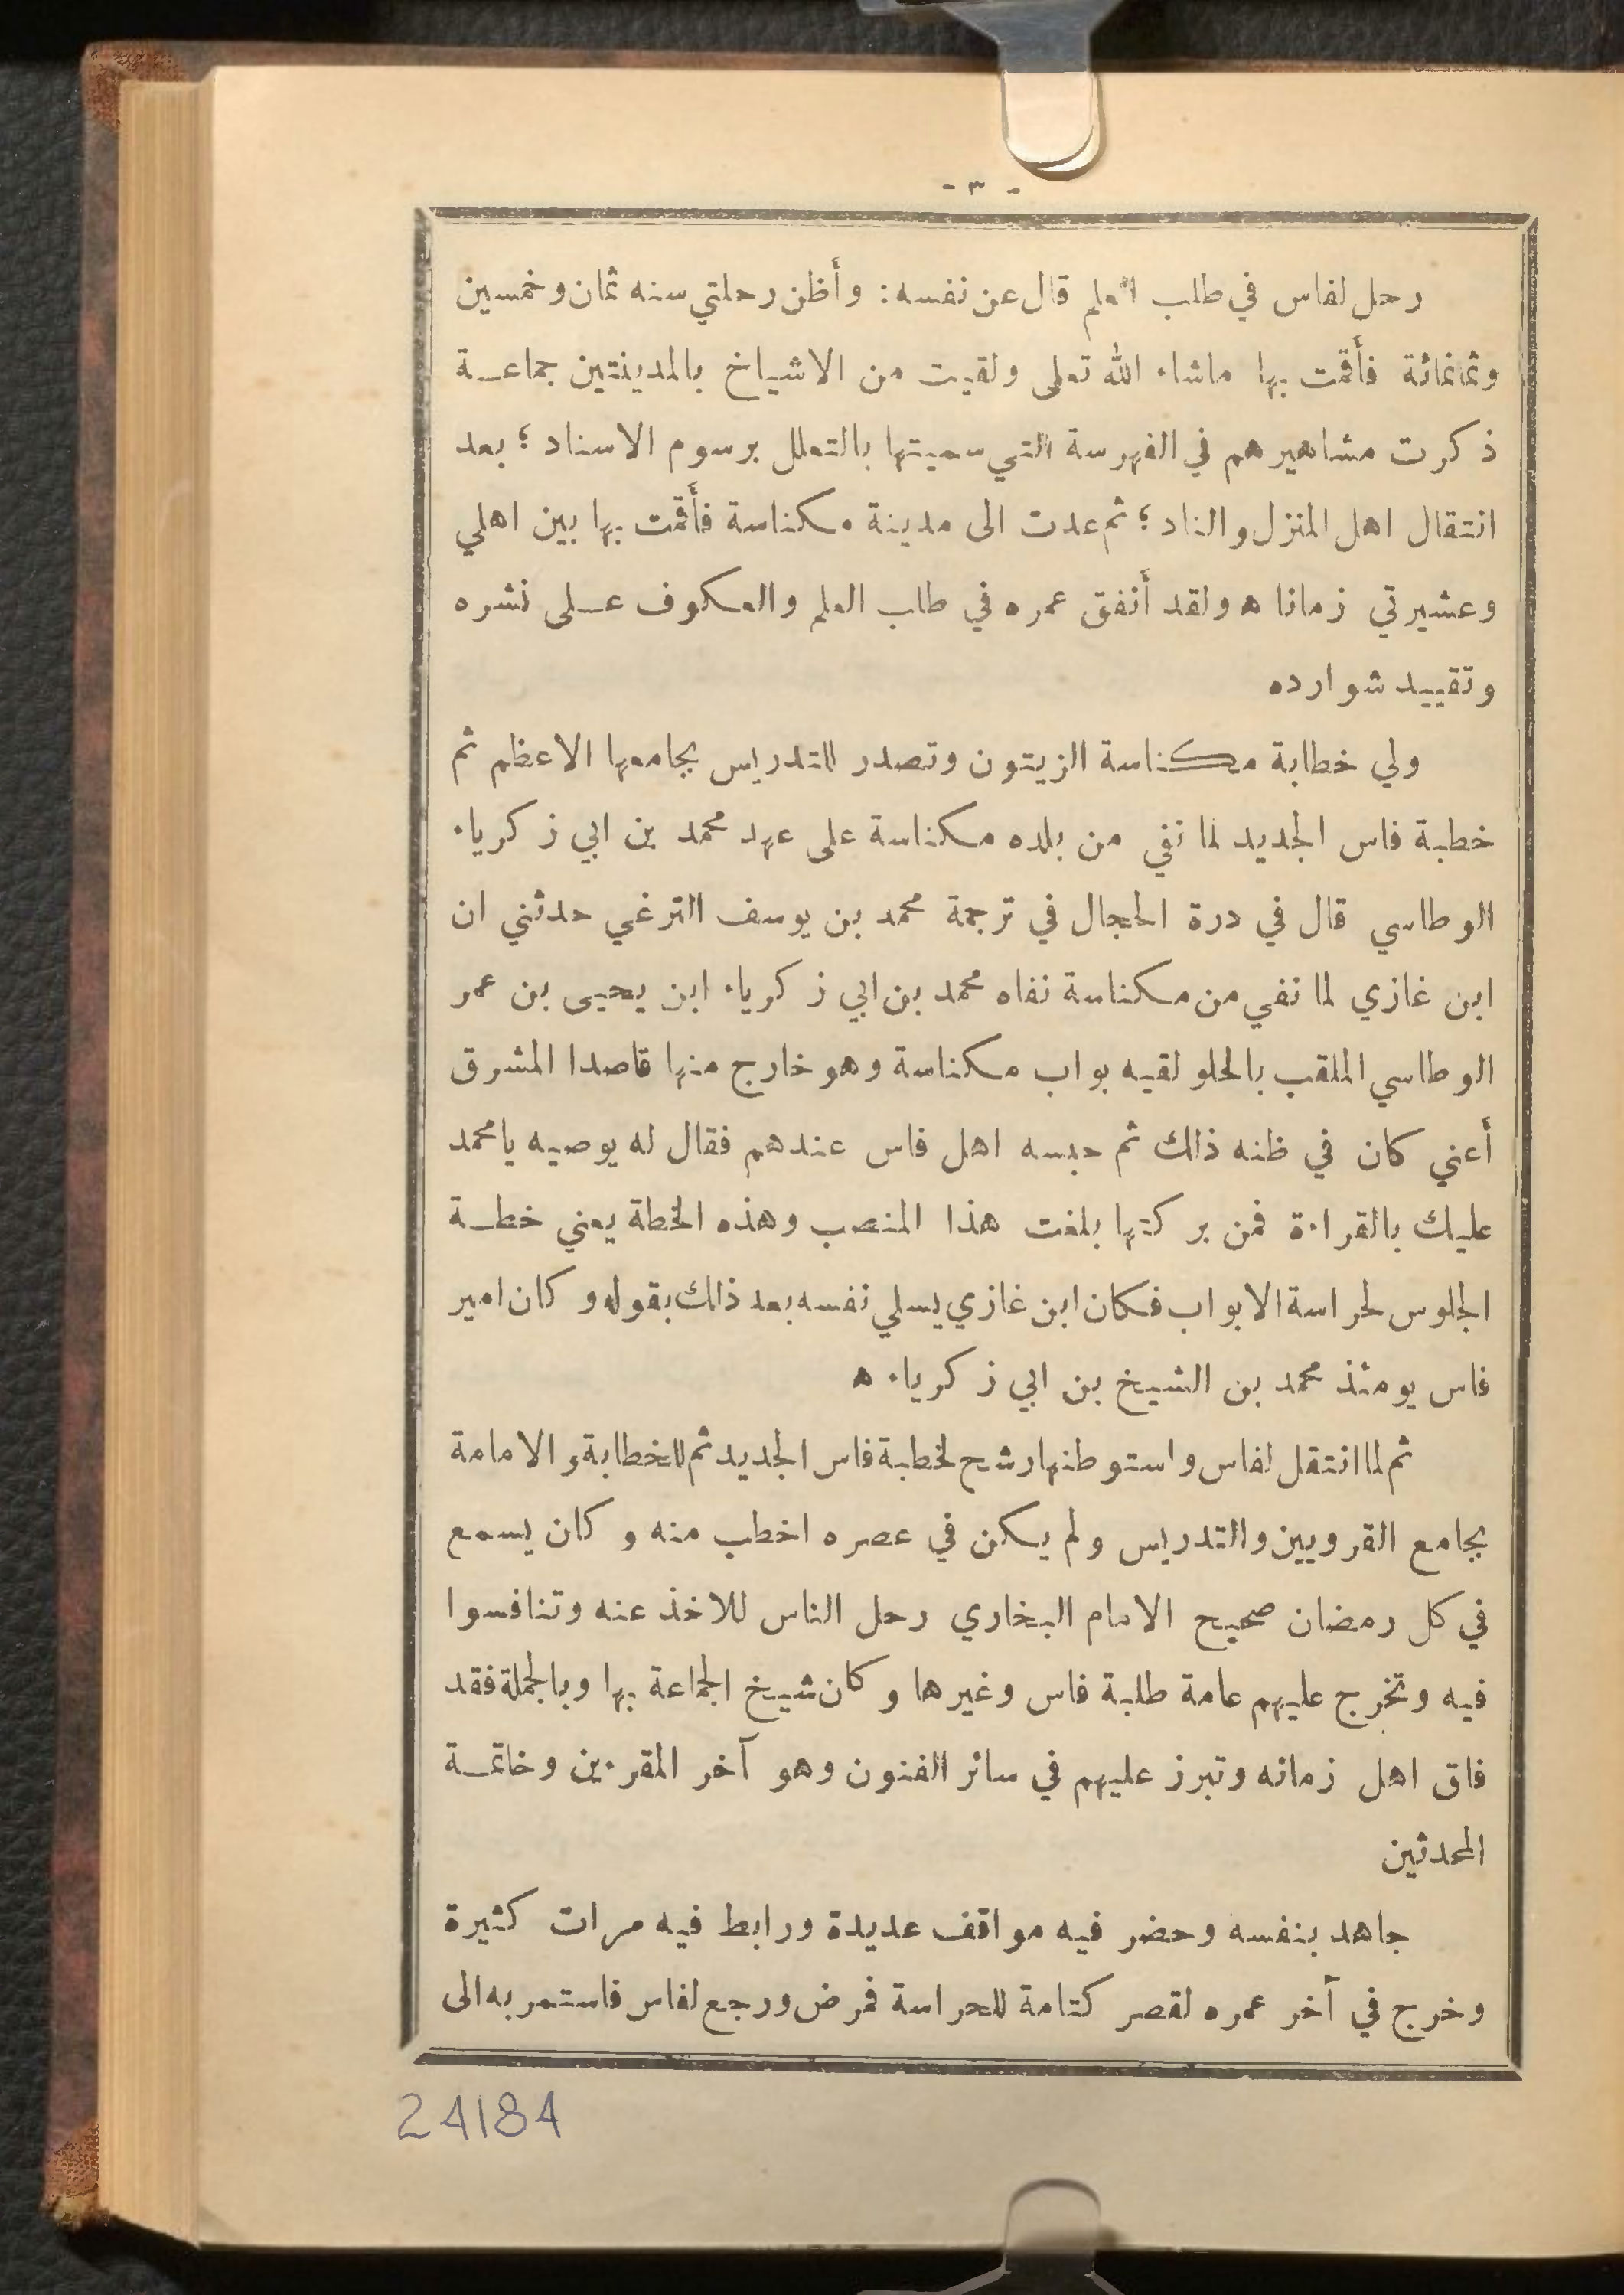 - ٣ -
رحل لفاس في طلب العلم قال عن نفسه : وأظن رحلتي سنه ثمان وخمسين
وثمانمائة فأقمت بها ماشاء الله تعلى ولقيت من الاشياخ بالمدينتين جماعـة
ذكرت مشاهيرهم في الفهرسة التي سميتها بالتعلل برسوم الاسناد ؛ بعد
انتقال اهل المنزل والناد ؛ ثم عدت الى مدينة مكناسة فأقمت بها بين اهلي
وعشيرتي زمانا ه ولقد أنفق عمره في طلب العلم والعكوف عـلى نشره
وتقييد شوارده
ولي خطابة مكناسة الزيتون وتصدر للتدريس بجامعها الاعظم ثم
خطبة فاس الجديد لما نفي من بلده مكناسة على عهد محمد بن ابي زكرياء
الوطاسي قال في درة الحجال في ترجمة محمد بن يوسف الترغي حدثني ان
ابن غازي لما نفي من مكناسة نفاه محمد بن ابي زكرياء ابن يحيى بن عمر
الوطاسي الملقب بالحلو لقيه بواب مكناسة وهو خارج منها قاصدا المشرق
أعني كان في ظنه ذالك ثم حبسه اهل فاس عندهم فقال له يوصيه يامحمد
عليك بالقراءة فمن بركتها بلغت هذا المنصب وهذه الخطة يعني خطـة
الجلوس لحراسة الابواب فكان ابن غازي يسلي نفسه بعد ذالك بقوله وكان امير
فاس يومئذ محمد بن الشيخ بن ابي زكرياء ه
ثم لما انتقل لفاس واستوطنها رشح لخطبة فاس الجديد ثم للخطابة والامامة
بجامع القرويين والتدريس ولم يكن في عصره اخطب منه وكان يسمع
في كل رمضان صحيح الامام البخاري رحل الناس للاخذ عنه وتنافسوا
فيه وتخرج عليهم عامة طلبة فاس وغيرها وكان شيخ الجماعة بها وبالجملة فقد
فاق اهل زمانه وتبرز عليهم في سائر الفنون وهو آخر المقرءين وخاتمـة
المحدثين
جاهد بنفسه وحضر فيه مواقف عديدة ورابط فيه مرات كثيرة
وخرج في آخر عمره لقصر كتامة للحراسة فمرض ورجع لفاس فاستمر به الى
24184